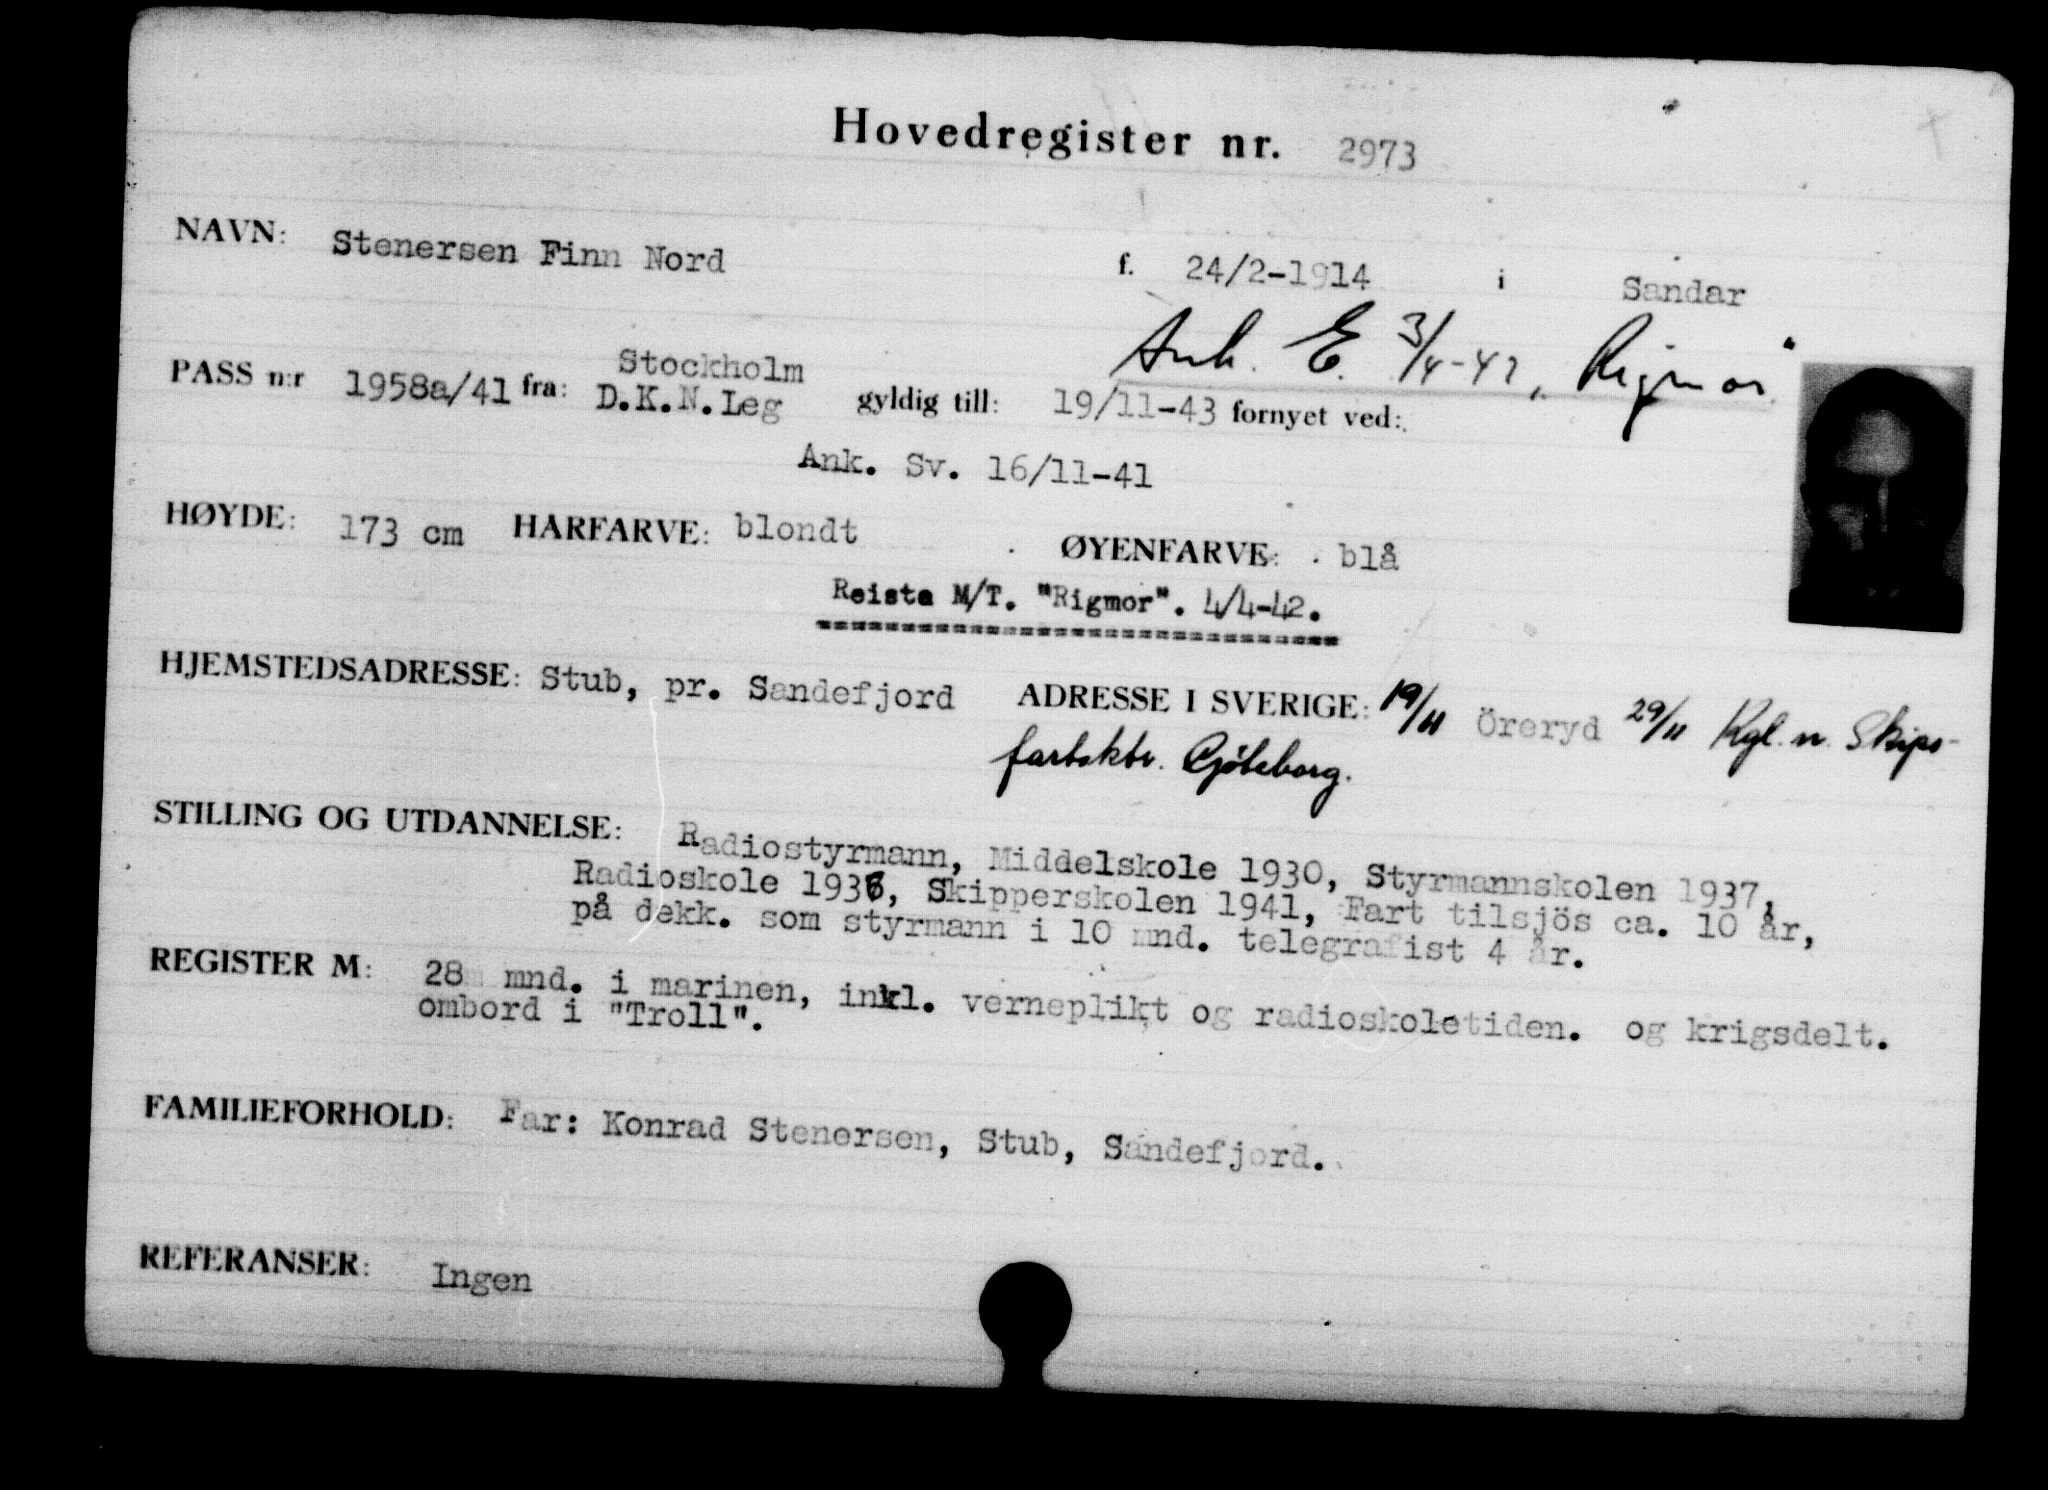 Hovedregister nr. 2973
NAVN: Stenersen Finn Nord f. 24/2-1914 i Sandar
Ank. E. 3/4-42 „Rigmor"
Stockholm
PASS n:r 1958a/41 fra: D.K.N.Leg gyldig till: 19/11-43 fornyet ved:
Ank. Sv. 16/11-41
HØYDE: 173 cm HARFARVE: blondt ØYENFARVE: blå
Reiste M/T. "Rigmor". 4/4-42.
HJEMSTEDSADRESSE: Stub, pr. Sandefjord ADRESSE I SVERIGE: 19/11 Öreryd 29/11 Kgl. n. Skips-
fartsktr. Göteborg.
STILLING OG UTDANNELSE: Radiostyrmann, Middelskole 1930, Styrmannskolen 1937,
Radioskole 1936, Skipperskolen 1941, Fart tilsjös ca. 10 år,
på dekk. som styrmann i 10 mnd. telegrafist 4 år.
REGISTER M: 28 mnd. i marinen, inkl. verneplikt og radioskoletiden. og krigsdelt.
ombord i "Troll".
FAMILIEFORHOLD: Far: Konrad Stenersen, Stub, Sandefjord.
REFERANSER: Ingen